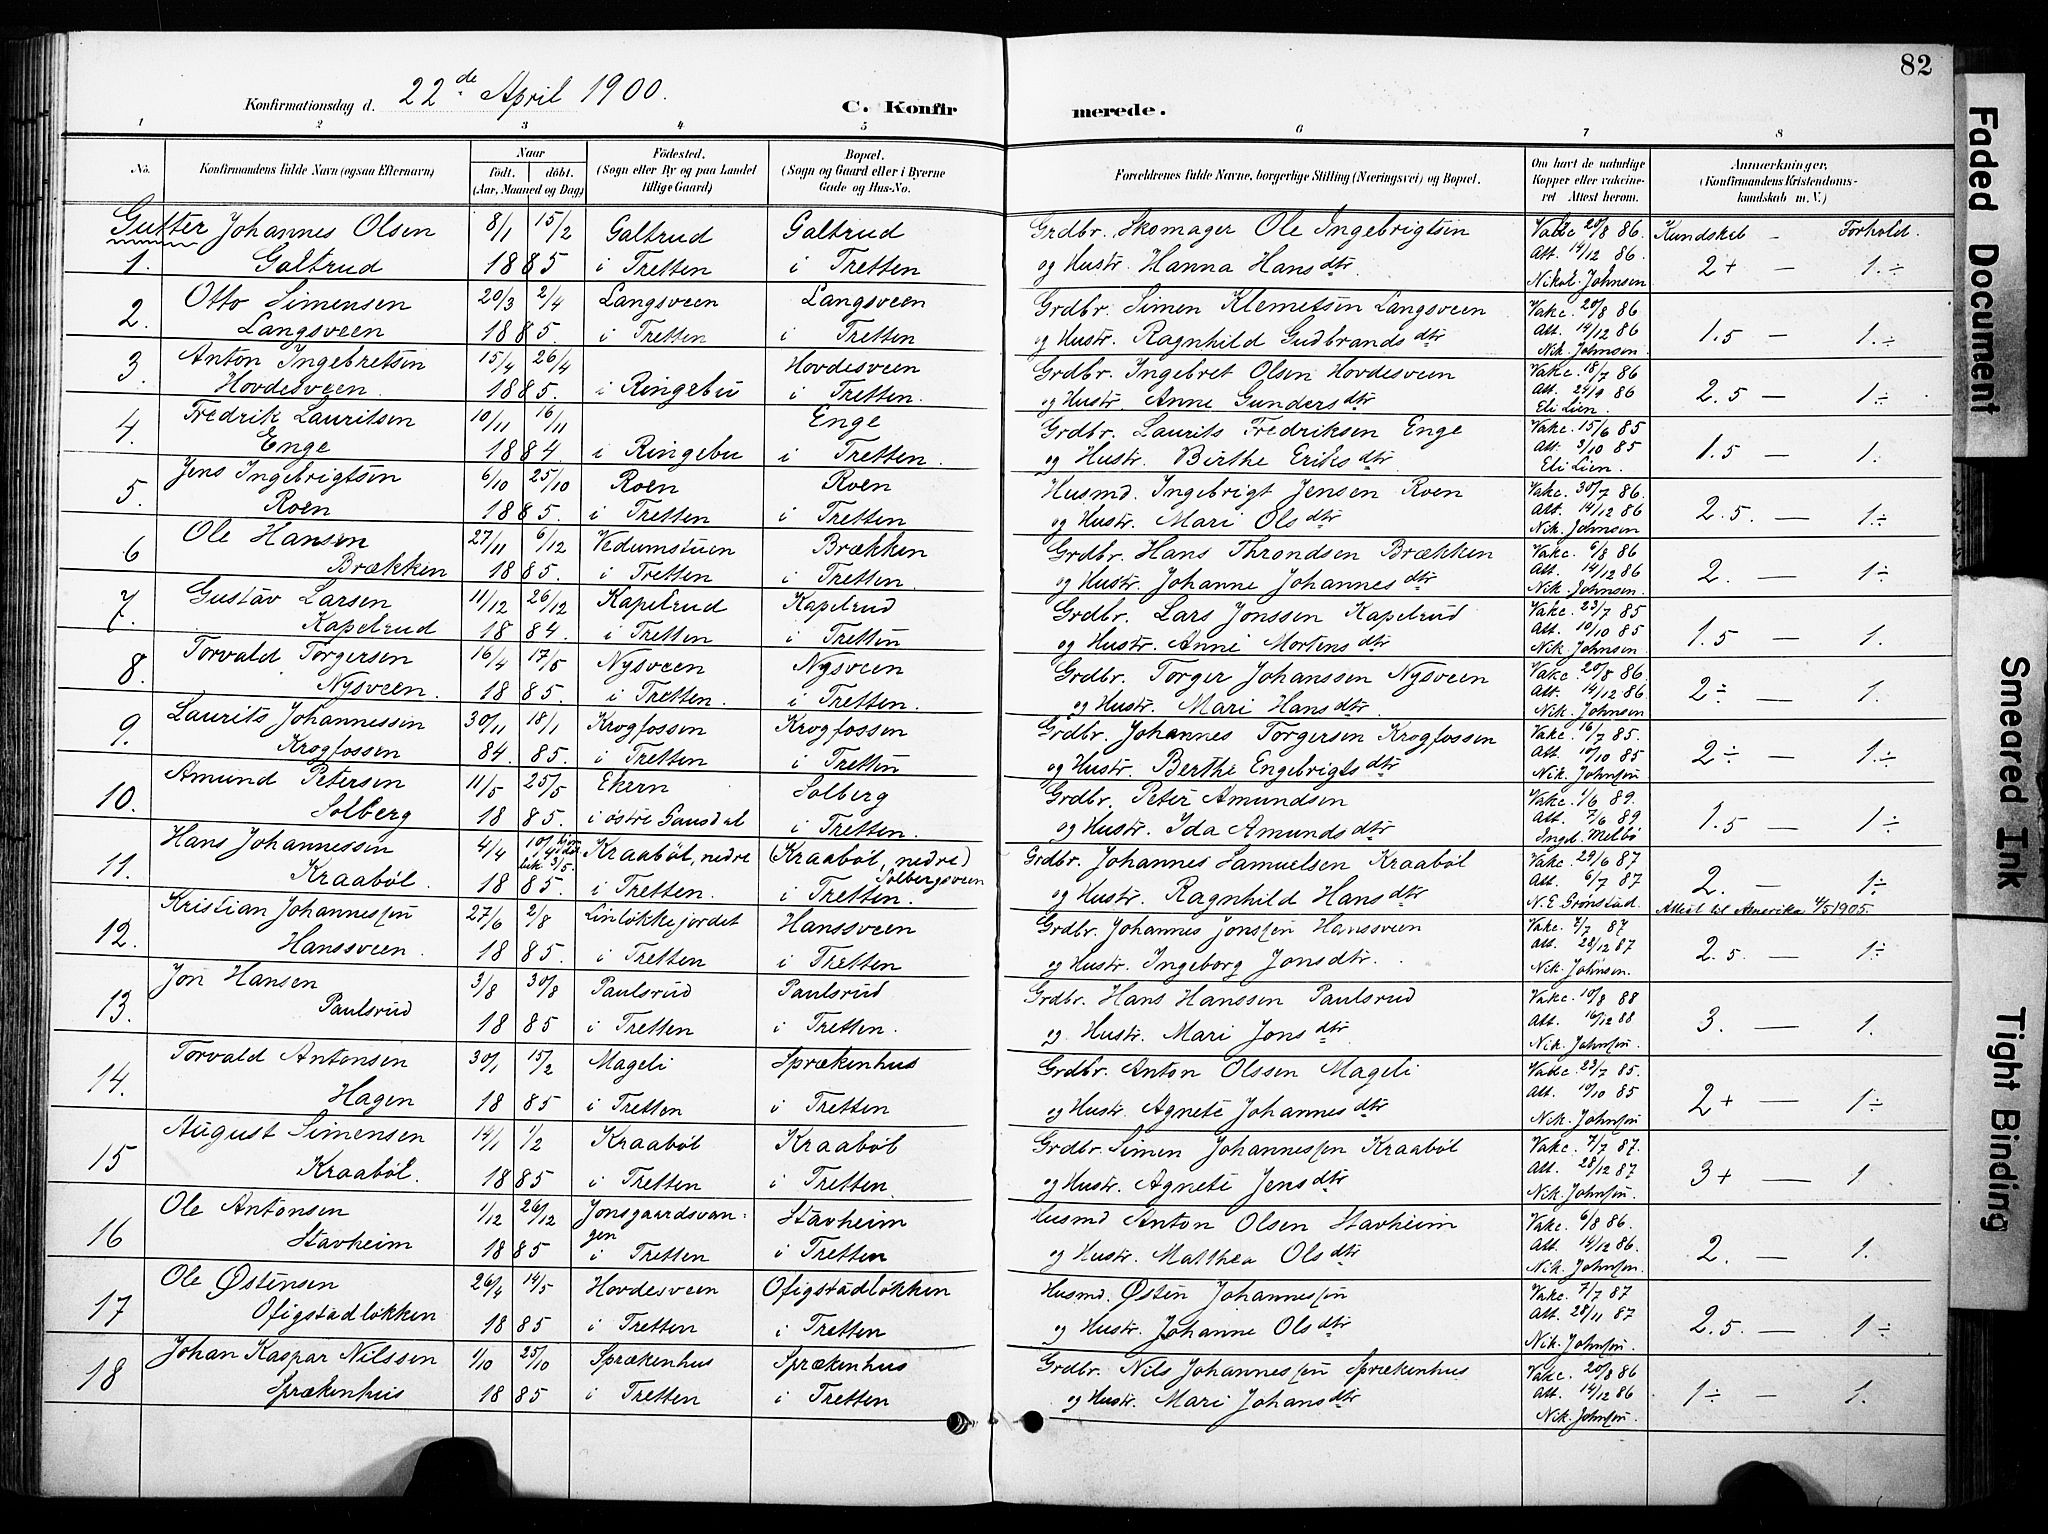 82
Konfirmationsdag d. 22de April 1900.
C. Konfirmerede.
1 2 3 4 5 6 7 8
No. Konfirmandens fulde Navn (ogsaa Efternavn) Naar født. døbt. (Aar, Maaned og Dag) Fødested. (Sogn eller By og paa Landet tillige Gaard) Bopæl. (Sogn og Gaard eller i Byerne Gade og Hus-No. Forældrenes fulde Navne, borgerlige Stilling (Næringsvei) og Bopæl. Om havt de naturlige Kopper eller vakcineret Attest herom. Anmærkninger, (Konfirmandens Kristendomskundskab m. V.)
Gutter Johannes Olsen 8/1 15/2 Galtrud Galtrud Grdbr. Skomager Ole Ingebrigtsen Vakc 20/8 86. Kundskab – Forhold.
1. Galtrud 1885 i Tretten i Tretten og Hustr. Hanna Hansdtr Att. 14/12 86. Nikol. Johnsen 2+ — 1.÷
Otto Simensen 20/3 2/4 Langsveen Langsveen Grdbr. Simen Klemetsen Langsveen Vakc. 20/8 86
2. Langsveen 1885. i Tretten i Tretten og Hustr. Ragnhild Gudbrandsdtr Att. 14/12 86 Nik. Johnsen 1.5 — 1.÷
Anton Ingebretsen 15/4 26/4 Hovdesveen Grdbr. Ingebret Olsen Hovdesveen Vakc. 18/7 86
3. Hovdesveen. 1885. i Ringebu i Tretten. og Hustr. Anne Gundersdtr Att. 24/9 86 Eli Lien. 2.5 — 1.÷
Fredrik Lauritsen 10/11 16/11 Enge Grdbr. Laurits Fredriksen Enge Vakc. 15/6 85
4. Enge 1884. i Ringebu i Tretten. og Hustr. Birthe Eriksdtr Att. 3/10 85 Eli Lien. 1.5 — 1.
Jens Ingebrigtsen 6/10 25/10 Roen Roen Husmd. Ingebrigt Jensen Roen Vakc. 30/7 86.
5. Roen 1885. i Tretten i Tretten og Hustr. Mari Olsdtr Att. 14/12 86 Nik. Johnsen 2.5. — 1.÷
Ole Hansen 27/11 6/12 Vedumstuen Brækken Grdbr. Hans Throndsen Brækken Vakc. 6/8 86
6 Brækken 1885. i Tretten i Tretten. og Hustr. Johanne Johannesdtr Att. 14/12 86 Nik. Johnsen. 2. — 1÷
Gustav Larsen 11/12 26/12 Kapelrud Kapelrud Grdbr. Lars Jonssen Kapelrud Vakc. 23/7 85
7. Kapelrud 1884. i Tretten i Tretten og Hustr. Anne Mortensdtr Att. 10/10 85 Nik. Johnsen 1.5 — 1.
Torvald Torgersen 16/4 17/5 Nysveen Nysveen Grdbr. Torger Johanssen Nysveen Vakc. 20/8 86.
8. Nysveen. 1885 i Tretten. i Tretten. og Hustr. Mari Hansdtr Att. 14/12 86 Nik. Johnsen 2÷ — 1.
Laurits Johannessen 30/11 18/1 Krogfossen Krogfossen Grdbr. Johannes Torgersen Krogfossen Vakc. 16/7 85.
9. Krogfossen 84. 85. i Tretten i Tretten og Hustr. Berthe Engebrigtsdtr Att. 10/10 85 Nik. Johnsen 2÷ — 1.÷
Amund Petersen 11/5 25/5 Ekern Solberg Grdbr. Peter Amundsen Vakc. 1/6 89.
10. Solberg 1885. i østre Gausdal i Tretten. og Hustr. Ida Amundsdtr Att. 7/6 89 Ingel. Melbø 1.5 — 1÷
Hans Johannessen 4/4 3/5. Kraabøl, nedre (Kraabøl, nedre) Solbergsveen Grdbr. Johannes Samuelsen Kraabøl Vakc. 29/6 87
11. Kraabøl. 1885. i Tretten. i Tretten. og Hustr. Ragnhild Hansdtr Att. 6/7 87 N. E. Grønstad. 2. — 1÷
Attest til Amerika 4/5 1905.
Kristian Johannessen 27/6 2/8 Linløkkejordet Hanssveen Grdbr. Johannes Jonssen Hanssveen Vakc. 7/7 87
12. Hanssveen. 1885. i Tretten i Tretten og Hustr. Ingeborg Jonsdtr. Att. 28/12 87 Nik. Johnsen. 2.5. — 1÷
Jon Hansen 3/8 30/8 Paulsrud Paulsrud Grdbr. Hans Hanssen Paulsrud Vakc. 10/8 88
13. Paulsrud 1885 i Tretten i Tretten. og Hustr. Mari Jonsdtr Att. 16/12 88 Nik. Johnsen. 3. — 1.
Torvald Antonsen 30/1 15/2 Mageli Sprækenhus Grdbr. Anton Olssen Mageli Vakc. 23/7 85.
14. Hagen 1885 i Tretten i Tretten og Hustr. Agnete Johannesdtr Att. 10/10 85 Nik. Johnsen 2+ — 1÷
August Simensen 14/1 1/2 Kraabøl Kraabøl Grdbr. Simen Johannessen Kraabøl Vakc. 7/7 87.
15 Kraabøl. 1885 i Tretten i Tretten. og Hustr. Agnete Jensdtr Att. 28/12 87 Nik. Johnsen. 3+ — 1
Ole Antonsen 1/12 26/12 Jonsgaardsvangen Stavheim Husmd Anton Olsen Stavheim Vakc. 6/8 86.
16 Stavheim 1885 i Tretten i Tretten og Hustr. Matthea Olsdtr Att. 14/12 86. Nik. Johnsen. 2. — 1.
Ole Østensen 26/4 14/5 Hovdesveen Ofigstadløkken Husmd. Østen Johannessen Vakc. 7/7 87
17 Ofigstadløkken 1885 i Tretten i Tretten og Hustr. Johanne Olsdtr Att. 28/11 87 Nik. Johnsen 2.5. — 1÷
Johan Kaspar Nilssen 1/10 25/10 Sprækenhus Sprækenhus Grdbr. Nils Johannessen Sprækenhus Vakc. 20/8 86
18 Sprækenhus 1885 i Tretten i Tretten og Hustr. Mari Johansdtr Att. 14/12 86 Nik. Johnsen. 1÷ — 1.
Faded Document
Smeared Ink
Tight Binding